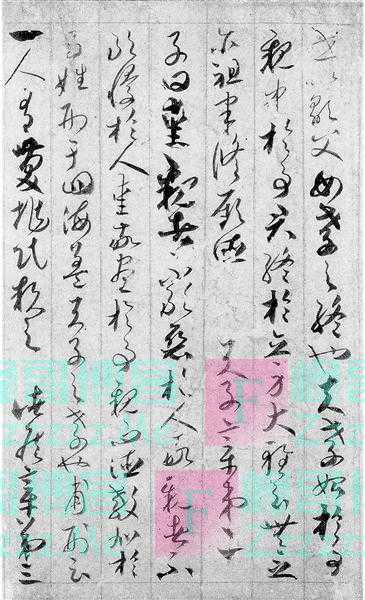 世以顯父母孝之終也夫孝始於事
親中於事君終於立身大雅云無念
爾祖聿脩厥德 天子章第二
子曰愛親者不敢惡於人敬親者不
敢慢於人愛敬盡於事親而德教加於
百姓刑于四海蓋天子之孝也甫刑云
一人有慶兆民賴之 諸侯章第三